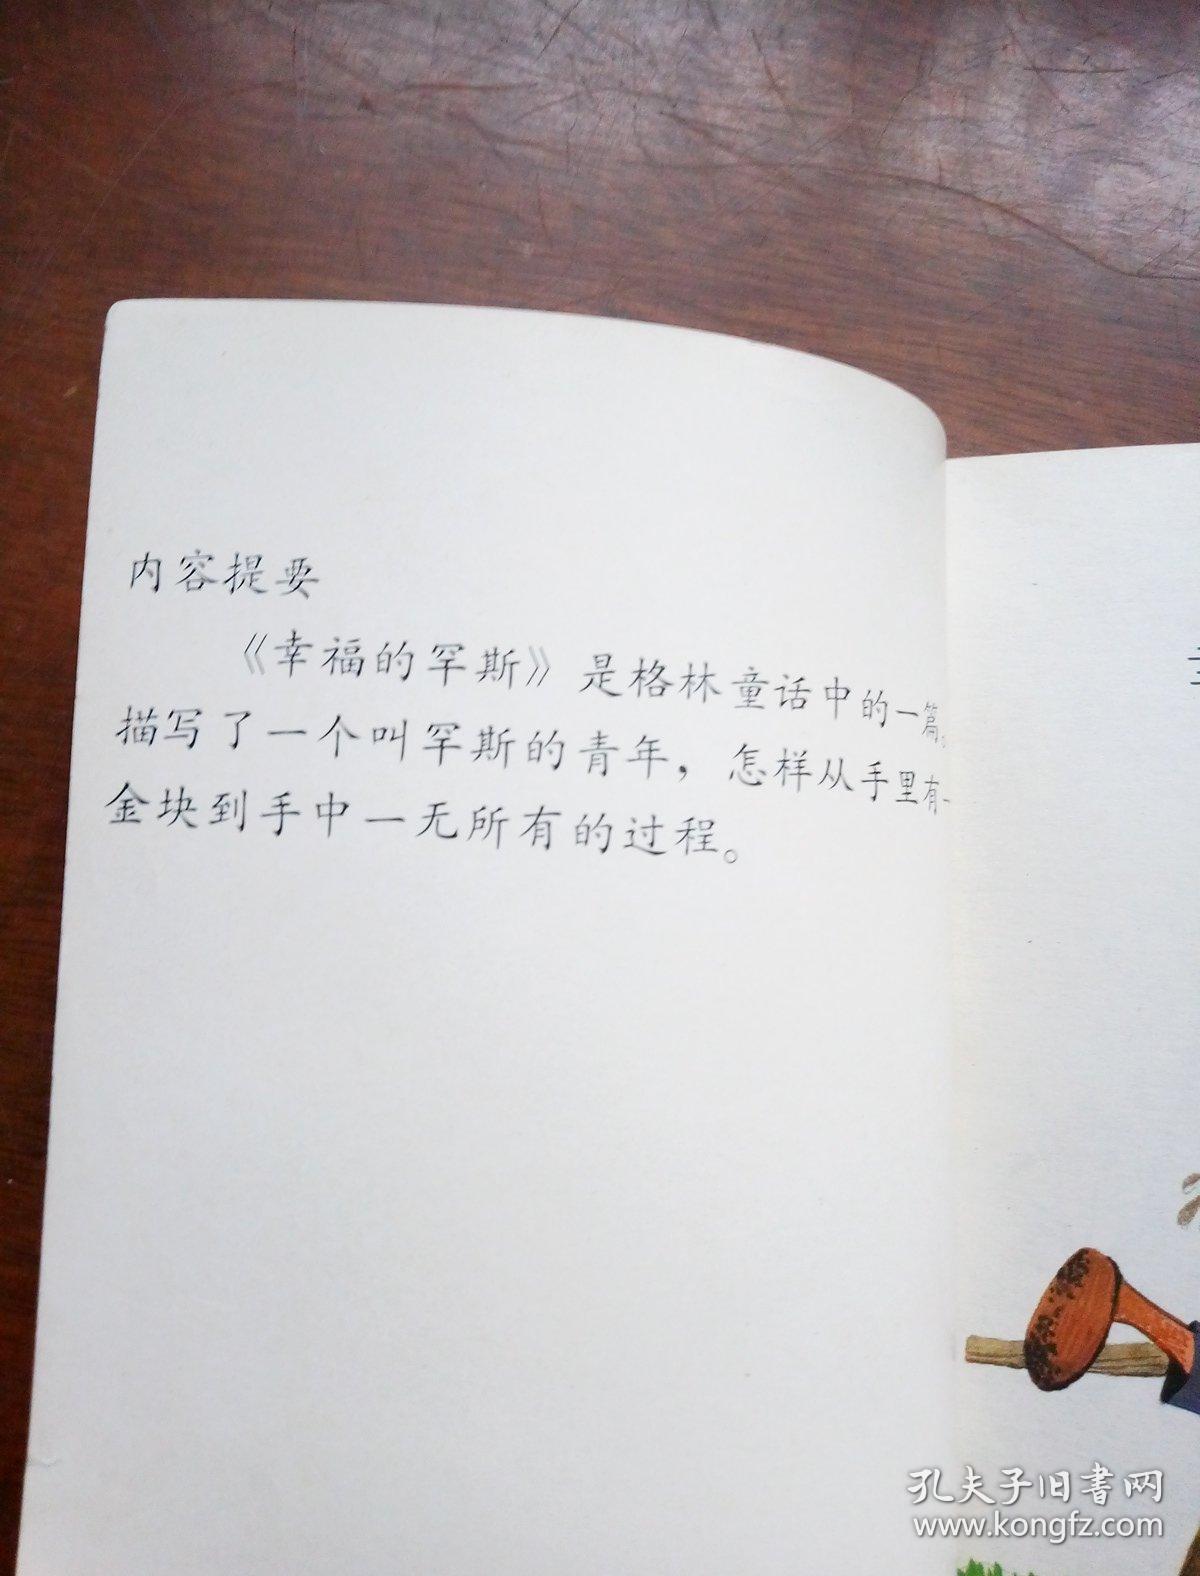 内容提要
《幸福的罕斯》是格林童话中的一篇。
描写了一个叫罕斯的青年，怎样从手里有一
金块到手中一无所有的过程。
孔夫子旧书网
www.kongfz.com